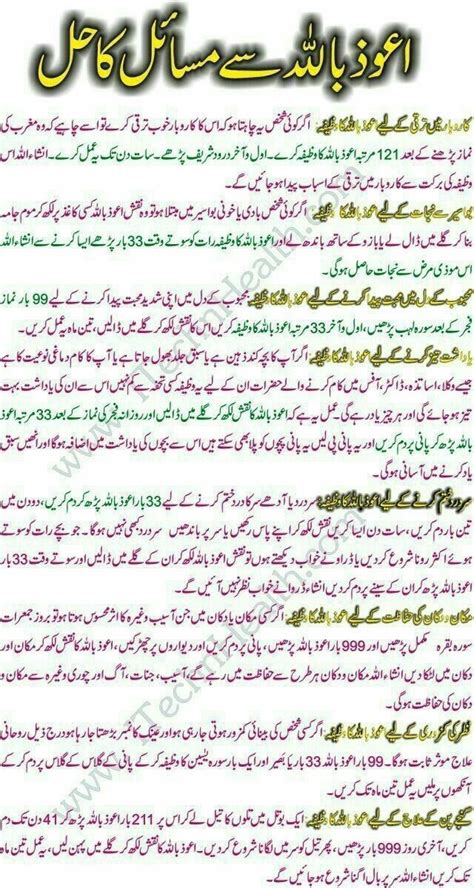 اعوذ باللہ سے مسائل کا حل
کاروبار میں ترقی کے لیے اعوذ باللہ کا وظیفہ: اگر کوئی شخص یہ چاہتا ہو کہ اس کا کاروبار خوب ترقی کرے تو اسے چاہیے کہ وہ مغرب کی
نماز پڑھنے کے بعد 121 مرتبہ اعوذ باللہ کا وظیفہ کرے۔ اول و آخر درود شریف پڑھے۔ سات دن تک یہ عمل کرے۔ انشاء اللہ اس
وظیفہ کی برکت سے کاروبار میں ترقی کے اسباب پیدا ہو جائیں گے۔
بواسیر سے نجات کے لیے اعوذ باللہ کا وظیفہ: اگر کوئی شخص بادی یا خونی بواسیر میں مبتلا ہو تو وہ نقش اعوذ باللہ کسی کاغذ پر لکھ کر موم جامہ
بنا کر گلے میں ڈال لے یا بازو کے ساتھ باندھ لے اور اعوذ باللہ کا وظیفہ رات کو سوتے وقت 33 بار پڑھے ایسا کرنے سے انشاء اللہ
اس موذی مرض سے نجات حاصل ہوگی۔
محبوب کے دل میں محبت پیدا کرنے کے لیے اعوذ باللہ کا وظیفہ: محبوب کے دل میں اپنی شدید محبت پیدا کرنے کے لیے 99 بار نماز
فجر کے بعد سورہ لہب پڑھیں، اول و آخر 33 مرتبہ اعوذ باللہ کا وظیفہ کریں۔ اس کا نقش لکھ کر گلے میں ڈالیں، تین ماہ یہ عمل کریں۔
یادداشت تیز کرنے کے لیے اعوذ باللہ کا وظیفہ: اگر آپ کا بچہ کند ذہن ہے یا سبق جلد بھول جاتا ہے یا آپ کا کام دماغی نوعیت کا ہے
جیسے وکلا، اساتذہ، ڈاکٹر، آفس میں کام کرنے والے حضرات ان کے لیے یہ وظیفہ کسی تحفہ سے کم نہیں اس سے ان کی یادداشت بہت
تیز ہو جائے گی اور ہر چیز یاد رہے گی۔ عمل یہ ہے کہ اعوذ باللہ کا نقش لکھ کر گلے میں ڈالیں اور روزانہ فجر کی نماز کے بعد 33 مرتبہ اعوذ
باللہ پڑھ کر پانی پر دم کریں اور یہ پانی پی لیں یہ پانی بچوں کو پلا بھی سکتے ہیں اس سے بچوں کی یادداشت میں اضافہ ہوگا اور انھیں سبق
یاد کرنے میں آسانی ہوگی۔
سر درد ختم کرنے کے لیے اعوذ باللہ کا وظیفہ: سر درد یا آدھے سر کا درد ختم کرنے کے لیے 33 بار اعوذ باللہ پڑھ کر دم کریں، دو دن میں
تین بار دم کریں، سات دن ایسا کریں نقش لکھ کر اپنے پاس رکھیں یا سر پر باندھیں سر درد کبھی نہیں ہوگا۔ جو بچے رات کو سوتے
ہوئے اکثر رونا شروع کر دیں یا ڈراؤنے خواب دیکھتے ہوں تو نقش اعوذ باللہ لکھ کر ان کے گلے میں ڈالیں اور سوتے وقت 33 بار
اعوذ باللہ پڑھ کر ان کے سینے پر دم کریں انشاء اللہ ڈراؤنے خواب نظر نہیں آئیں گے۔
مکان و دکان کی حفاظت کے لیے اعوذ باللہ کا وظیفہ: اگر کسی مکان یا دکان میں جن آسیب وغیرہ کا اثر محسوس ہوتا ہو تو بروز جمعرات
سورہ بقرہ مکمل پڑھیں اور 999 بار اعوذ باللہ پڑھیں، پانی پر دم کریں اور دیواروں پر چھڑکیں، اعوذ باللہ کا نقش لکھ کر مکان اور
دکان میں لٹکا دیں انشاء اللہ مکان و دکان ہر طرح سے حفاظت میں رہے گے، آسیب، جنات، آگ اور چوری وغیرہ سے مکان و
دکان کی حفاظت ہوگی۔
نظر کی کمزوری کے لیے اعوذ باللہ کا وظیفہ: اگر کسی شخص کی بینائی کمزور ہوتی جا رہی ہو اور عینک کا نمبر بڑھتا جا رہا ہو درج ذیل روحانی
علاج موثر ثابت ہوگا۔ 99 بار اعوذ باللہ 33 بار یا بصیر اور ایک بار سورہ یٰسین کا وظیفہ کر کے پانی کے گلاس پر دم کر کے
آنکھوں پر ملیں یہ عمل تین ماہ تک کریں۔
گنجے پن کے علاج کے لیے اعوذ باللہ کا وظیفہ: ایک بوتل میں تلوں کا تیل لے کر اس پر 211 بار اعوذ باللہ پڑھ کر 41 دن تک دم
کریں، آخری روز 999 بار پڑھیں، پھر تیل کو سر میں لگانا شروع کر دیں۔ اعوذ باللہ کا نقش لکھ کر گلے میں پہن لیں، یہ عمل تین ماہ
تک کریں انشاء اللہ سر پر بال اگنا شروع ہو جائیں گے۔
www.iTecimHealth.com
www.iTecimHealth.com